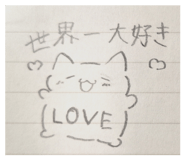 世界一大好き
LOVE